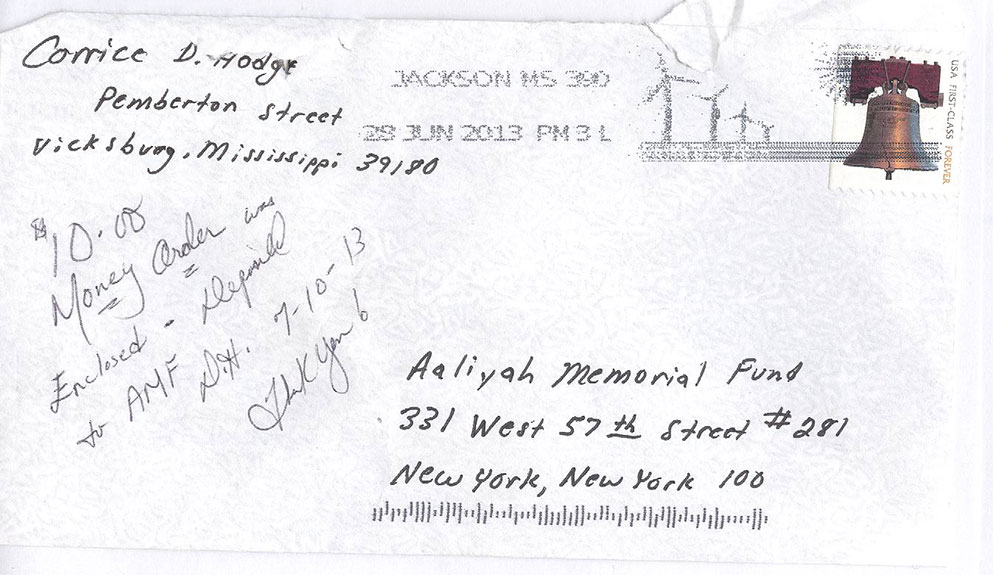 Corrice D. Hodge
Pemberton Street
Vicksburg, Mississippi 39180
JACKSON MS 390
28 JUN 2013 PM 3 L
USA FIRST-CLASS FOREVER
$10.00
Money Order was
Enclosed. Deposited
to AMF D.H. 7-10-13
Thank You!
Aaliyah Memorial Fund
331 West 57th Street #281
New York, New York 100